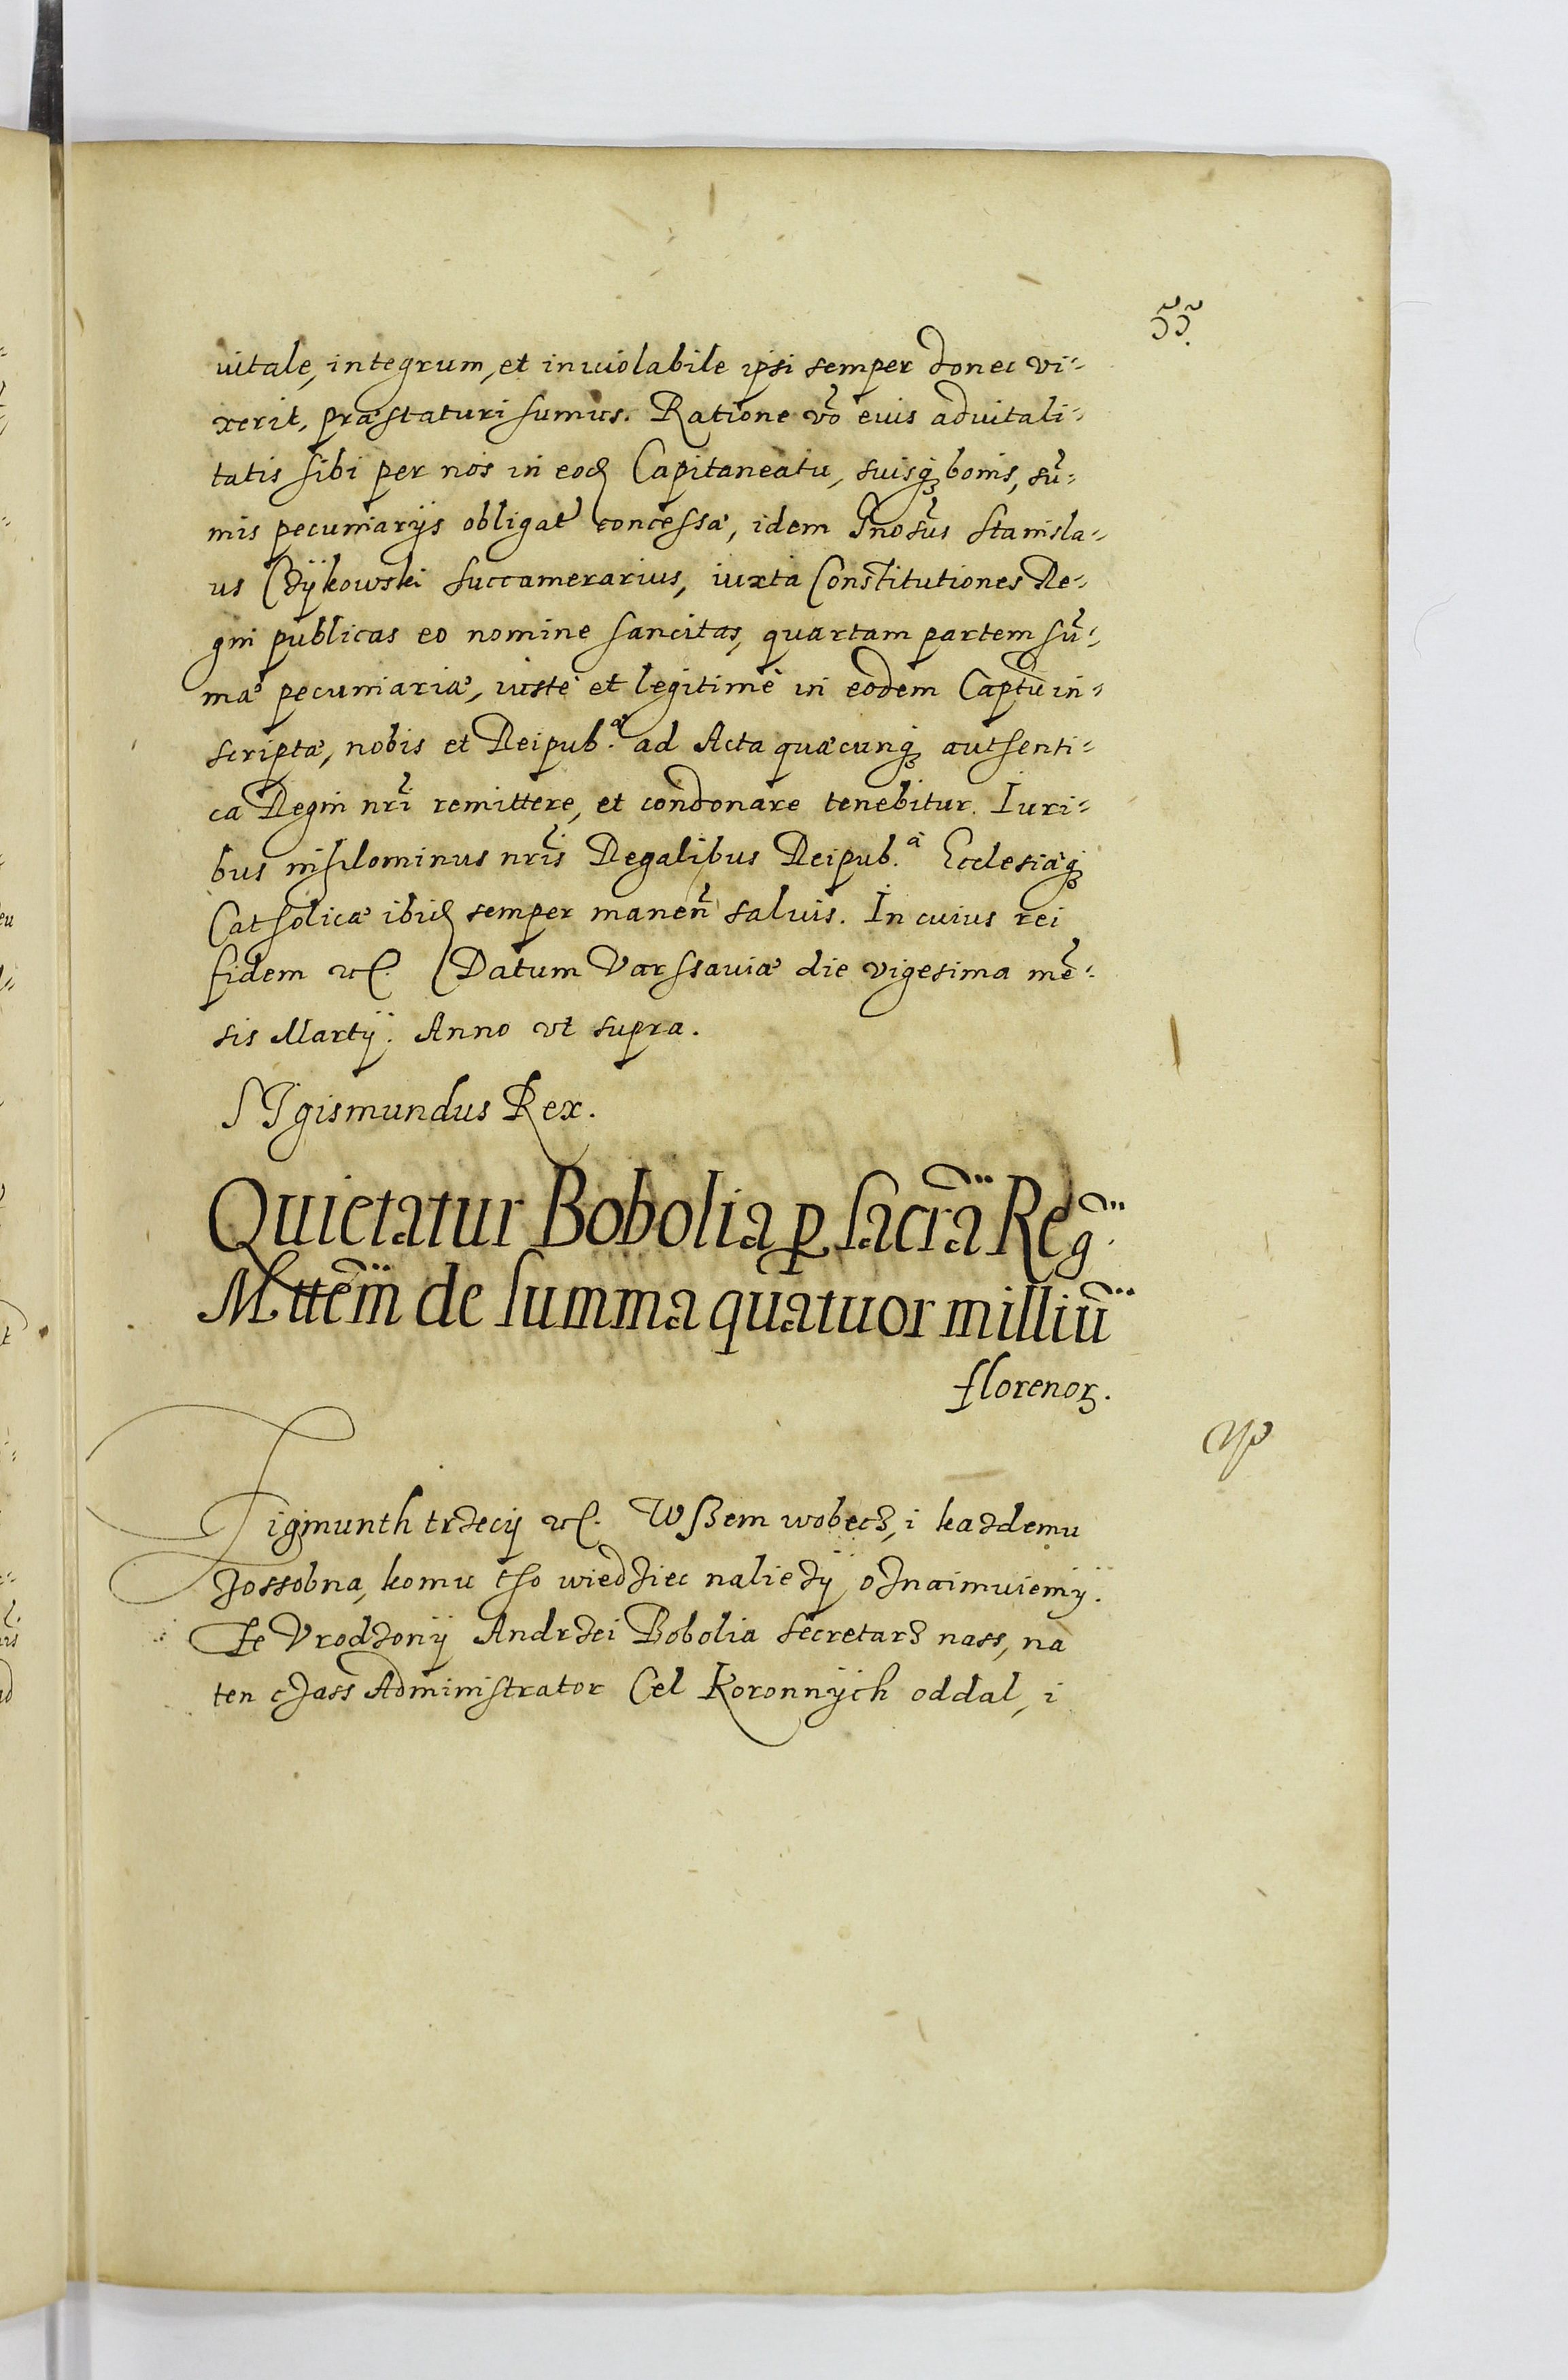 55.
uitale, integrum, et inuiolabile ipsi semper donec vi-
xerit, præstaturi sumus. Ratione vo̅ eius aduitali-
tatis sibi per nos in eod Capitaneatu, suisq bonis, su̅-
mis pecuniarijs obligat concessæ, idem Gnosus Stanisla-
us Czÿkowski Succamerarius, iuxta Constitutiones Re-
gni publicas eo nomine sancitas, quartam partem su̅-
mæ pecuniariæ, iustè et legitimè in eodem Captu in-
scriptæ, nobis et Reipub.æ ad Acta quæcunq authenti-
ca Regni nri̅ remittere, et condonare tenebitur. Iuri-
bus nihilominus nri̅s Regalibus Reipub.æ Ecclesiæq
Catholicæ ibid semper manen̅ saluis. In cuius rei
fidem etc. Datum Varssauiæ die vigesima me̅-
sis Martÿ. Anno vt supra.
SIgismundus Rex.
Quietatur Bobolia p sacra̅ Reg.
Mttem̅ de summa quatuor milliu̅
florenoꝝ.
Zigmunth trzecÿ etc. Wßem wobecz, i kazdemu
zossobna, komu tho wiedziec naliezÿ oznaimuiemÿ.
Ze Vrodzonÿ Andrzei Bobolia Secretarz nass, na
ten czass Administrator Cel Koronnÿch oddal, i